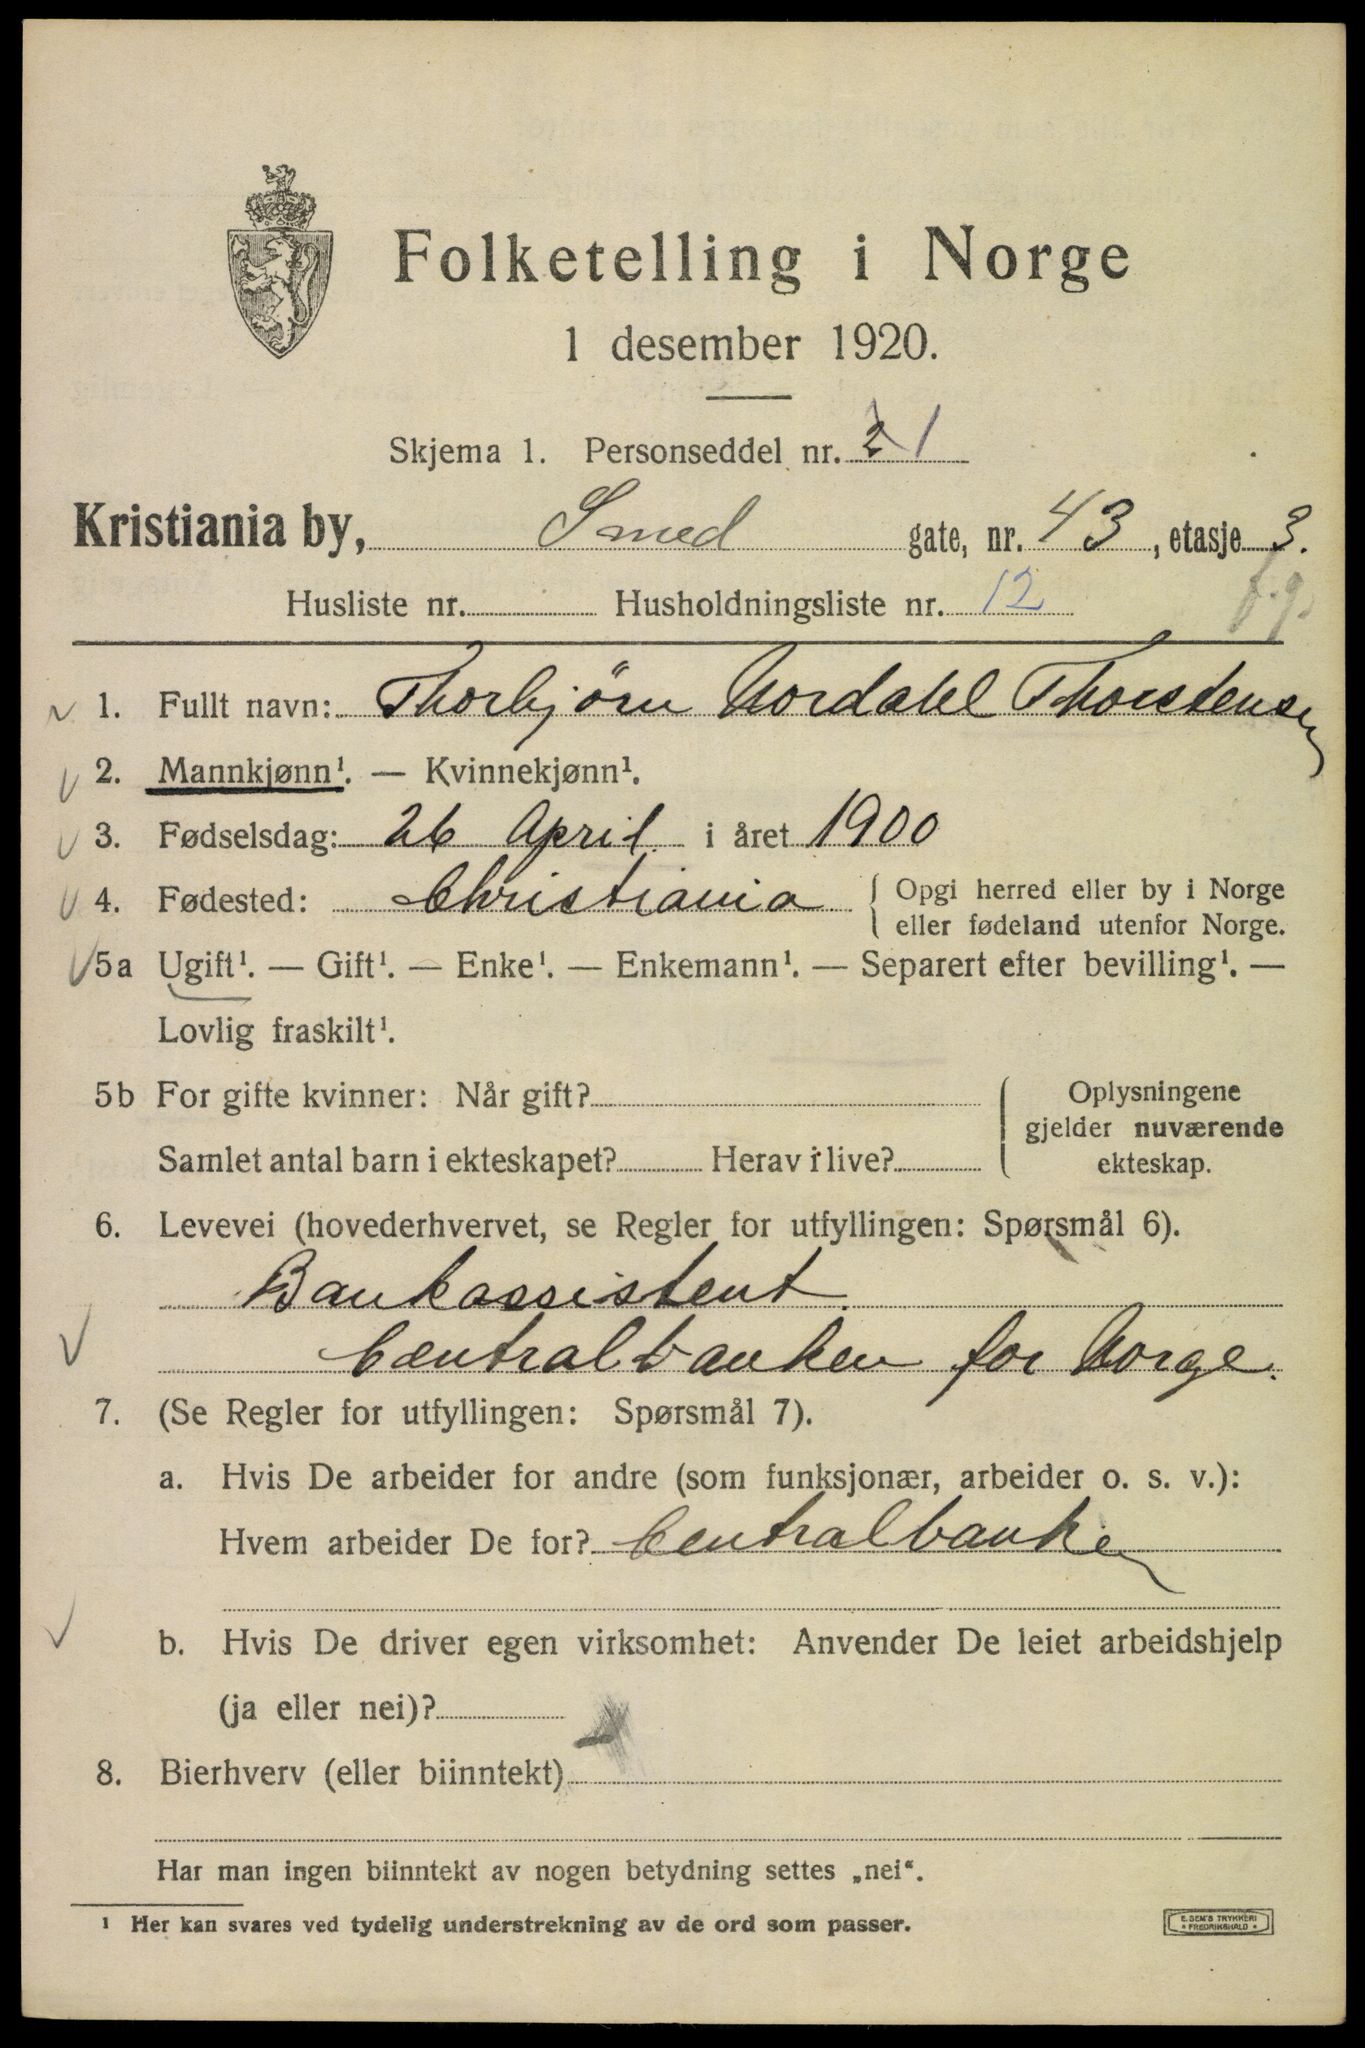 Folketelling i Norge
1 desember 1920.
Skjema 1. Personseddel nr. 2 1
Kristiania by, Smed gate, nr. 43, etasje 3.
Husliste nr. Husholdningsliste nr. 12
1. Fullt navn: Thorbjörn Nordahl Thorstensen
2. Mannkjønn¹. — Kvinnekjønn¹.
3. Fødselsdag: 26 April i året 1900
4. Fødested: Christiania { Opgi herred eller by i Norge
eller fødeland utenfor Norge.
5a Ugift¹. — Gift¹. — Enke¹. — Enkemann¹. — Separert efter bevilling¹. —
Lovlig fraskilt¹.
5b For gifte kvinner: Når gift?
Samlet antal barn i ekteskapet? Herav i live?
Oplysningene
gjelder nuværende
ekteskap.
6. Levevei (hovederhvervet, se Regler for utfyllingen: Spørsmål 6).
Bankassistent.
Centralbanken for Norge.
7. (Se Regler for utfyllingen: Spørsmål 7).
a. Hvis De arbeider for andre (som funksjonær, arbeider o. s. v.):
Hvem arbeider De for? Centralbanken
b. Hvis De driver egen virksomhet: Anvender De leiet arbeidshjelp
(ja eller nei)?
8. Bierhverv (eller biinntekt)
Har man ingen biinntekt av nogen betydning settes „nei“.
¹ Her kan svares ved tydelig understrekning av de ord som passer.
E. SEM'S TRYKKERI
* FREDRIKSHALD *